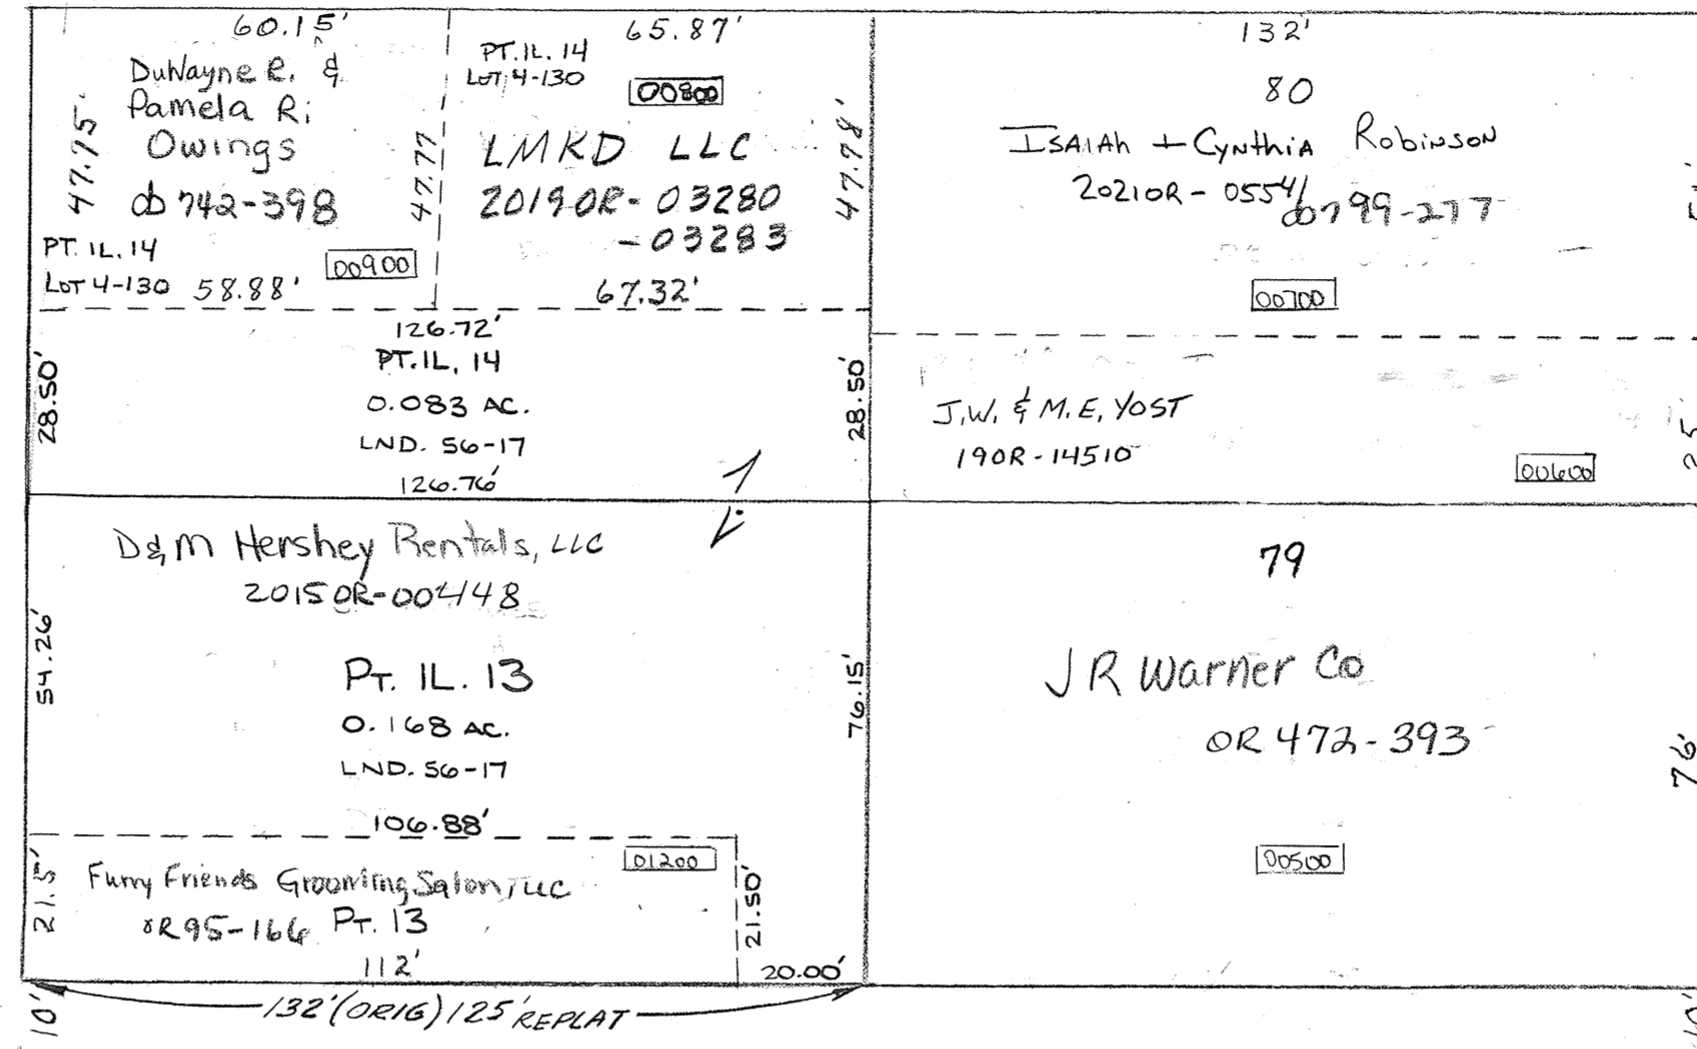 60.15'
DuWayne R. &
Pamela R.
Owings
db 742-398
47.75'
47.77
PT. IL. 14
LOT 4-130
58.88'
00900
65.87'
PT. IL. 14
LOT 4-130
00800
LMKD LLC
2019OR-03280
-03283
47.78'
67.32'
132'
80
ISAIAh + CyNthiA RobiNsoN
2021OR-05541
db799-277
00700
126.72'
PT. IL. 14
0.083 AC.
LND. 56-17
126.76'
28.50'
28.50'
J.W. & M.E. YOST
190R-14510
00600
D&M Hershey Rentals, LLC
2015OR-00448
54.26'
PT. IL. 13
0.168 AC.
LND. 56-17
106.88'
76.15'
79
JR Warner Co
OR 472-393
76'
00500
01200
Furry Friends Grooming Salon, LLC
OR95-166 PT. 13
21.5'
21.50'
112'
20.00'
10'
132' (ORIG) 125' REPLAT